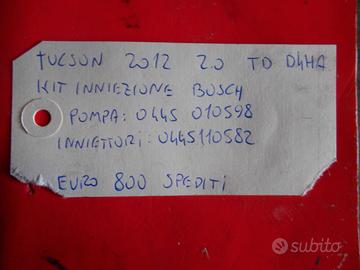 TUCSON 2012 2.0 TD D4HA
KIT INNIEZIONE BOSCH
POMPA: 0445 010598
INNIETTORI: 0445110582
EURO 800 SPEDITI
subito